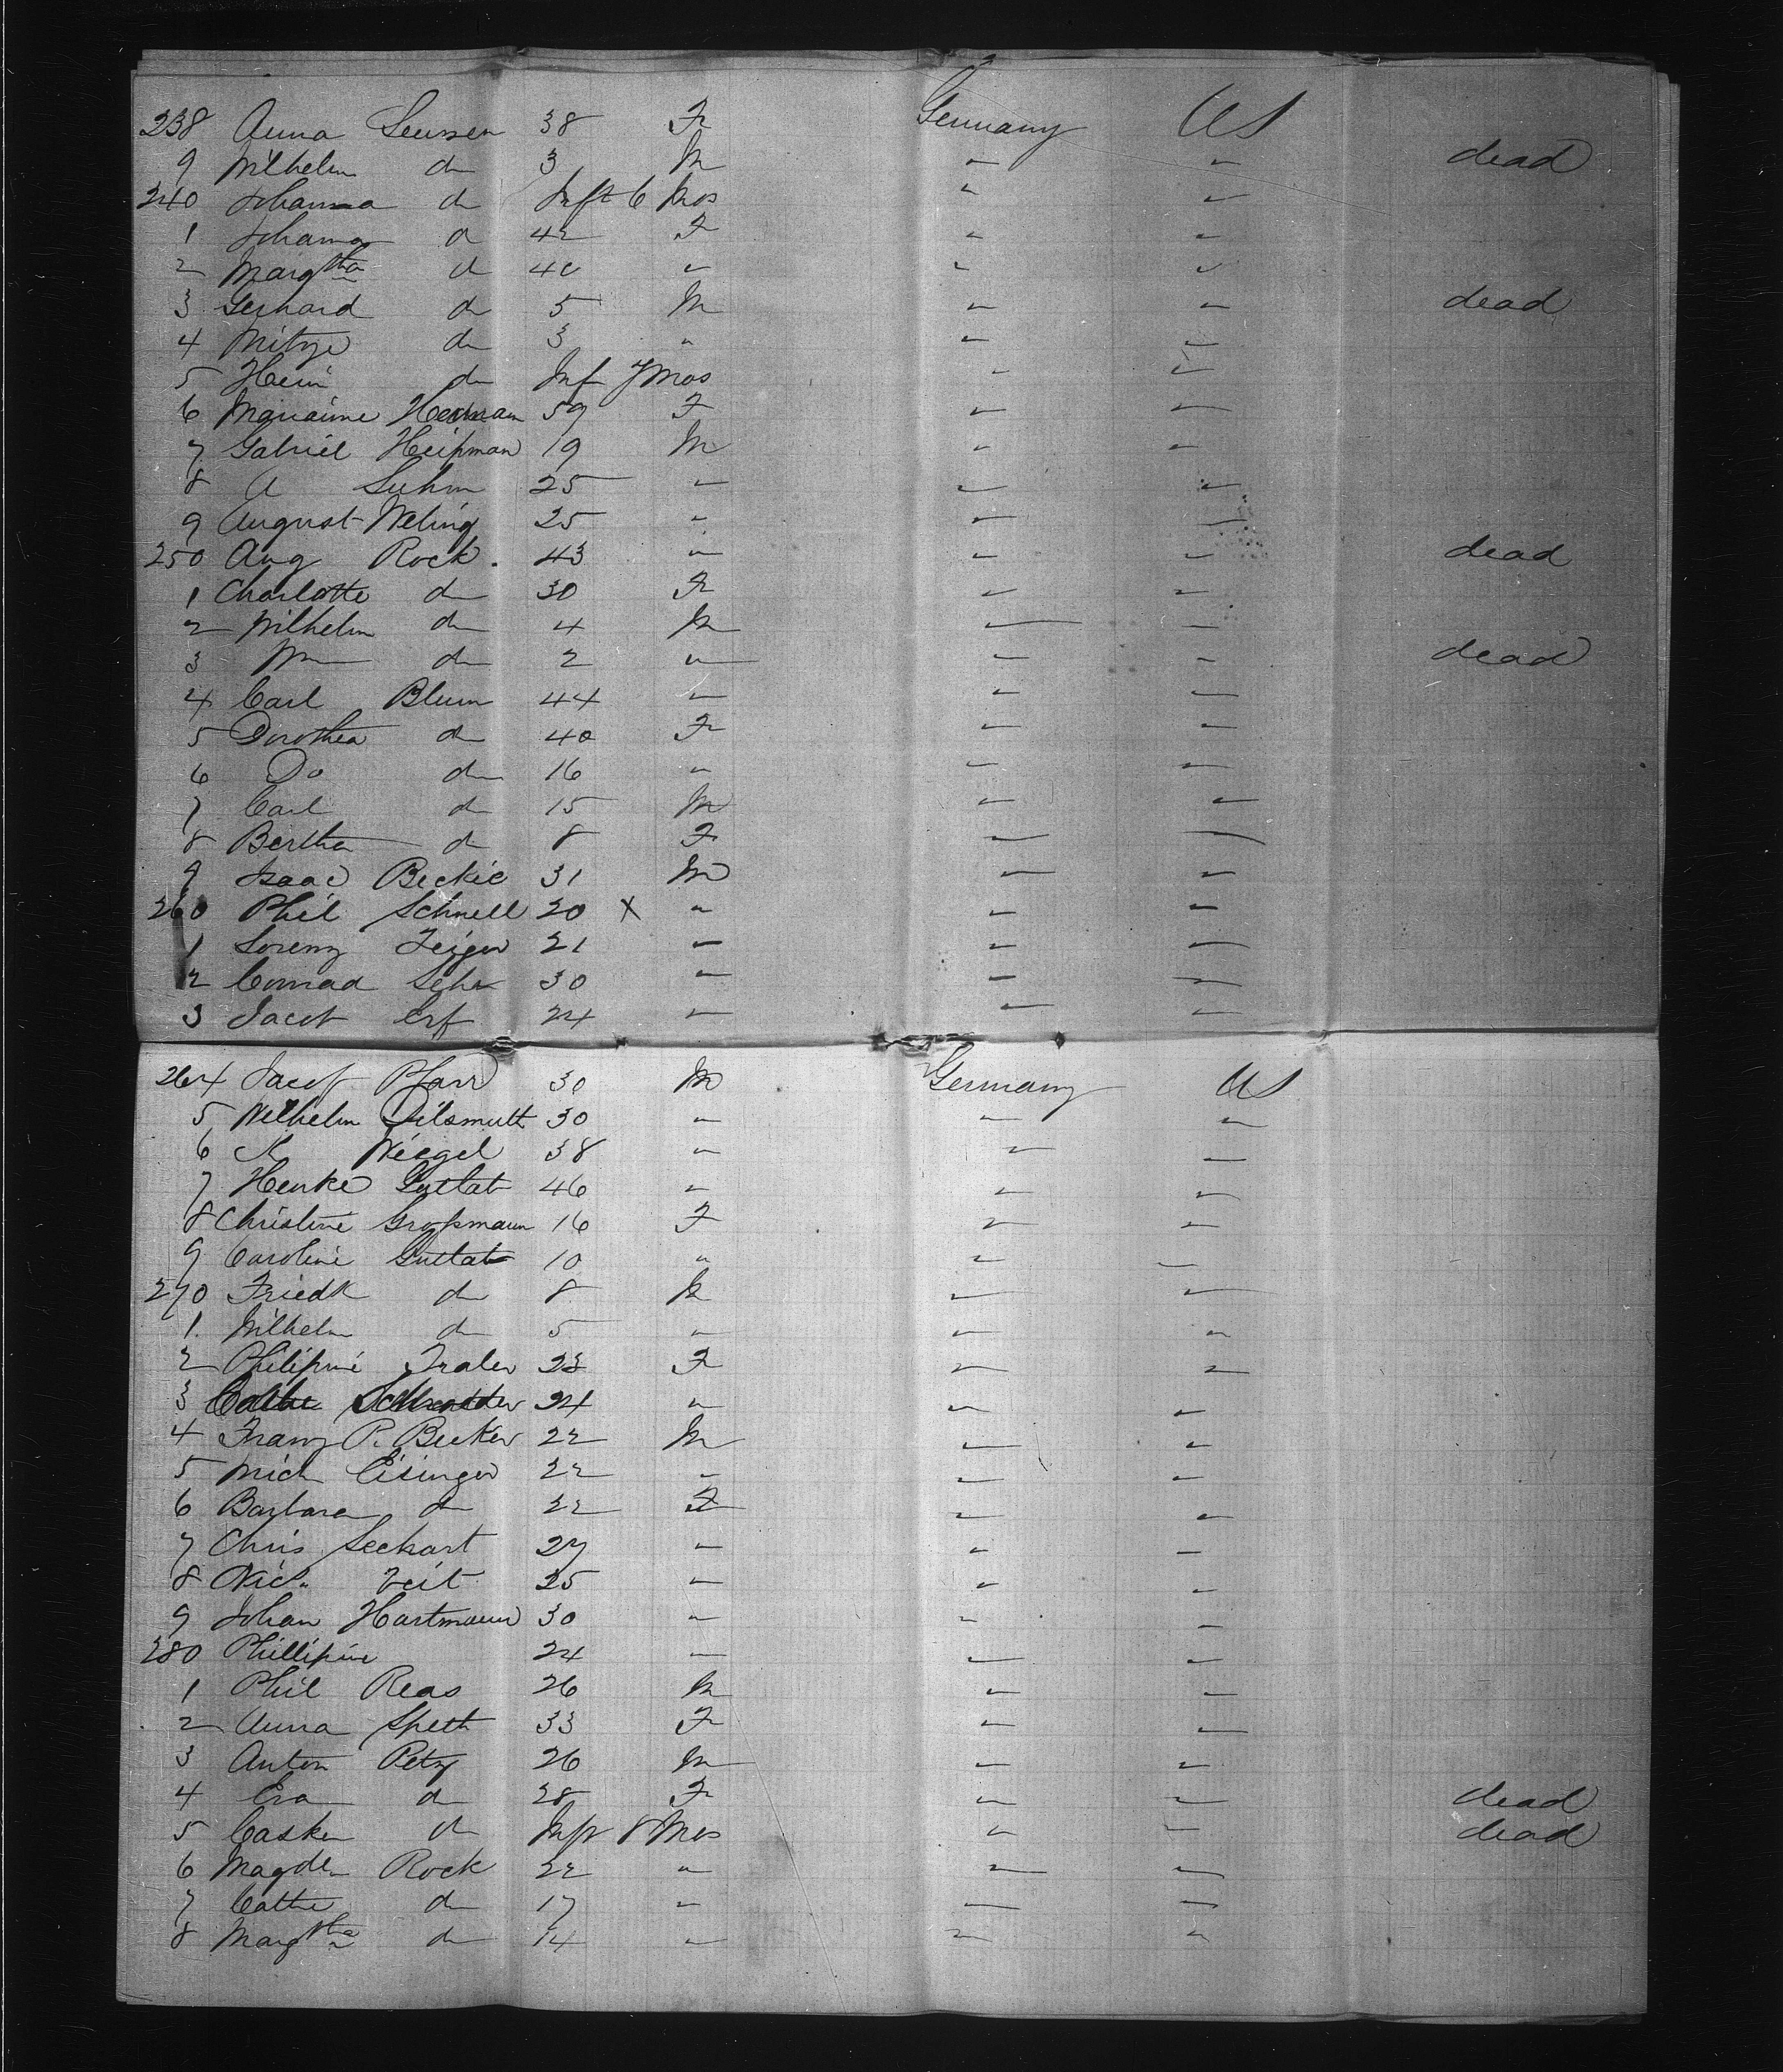 238 Anna Seussen 38 F Germany US
9 Wilhelm do 3 M " " dead
240 Johanna do Inft 6 Mos " "
1 Johanna do 42 F " "
2 Margtha do 40 " " "
3 Gerhard do 5 M " " dead
4 Mitze do 3 " " "
5 Hein do Inf 7 Mos " "
6 Marianne Herman 59 F " "
7 Gabriel Heipman 19 M " "
8 A Suhm 25 " " "
9 August Weling 25 " " "
250 Aug Rock. 43 " " " dead
1 Charlotte do 30 F " "
2 Wilhelm do 4 M " "
3 Wm do 2 " " " dead
4 Carl Blum 44 " " "
5 Dorothea do 40 F " "
6 Do do 16 " " "
7 Carl do 15 M " "
8 Bertha do 8 F " "
9 Isaac Beckie 31 M " "
260 Phil Schnell 20 X " " "
1 Lorenz Feiger 21 " " "
2 Conrad Sehr 30 " " "
3 Jacob Erf 24 " " "
264 Jacob Pfarr 30 M Germany US
5 Wilhelm Dilsmutt 30 " " "
6 K Wiegel 38 " " "
7 Henke Guttat 46 " " "
8 Christine Großmann 16 F " "
9 Caroline Guttat 10 " " "
270 Friedk do 8 M " "
1. Wilhelm do 5 " " "
2 Philipine Traler 23 F " "
3 Cathe Schroeder 24 " " "
4 Franz P. Becker 22 M " "
5 Mich Eisinger 22 " " "
6 Barbara do 22 F " "
7 Chris Seckart 27 " " "
8 Nic. Veit 25 " " "
9 Johan Hartmann 30 " " "
280 Phillipine 24 " " "
1 Phil Reas 26 M " "
2 Anna Speth 33 F " "
3 Anton Petry 26 M " "
4 Eva do 28 F " " dead
5 Casker do Inft 8 Mos " " dead
6 Magdln Rock 22 " " "
7 Cathe do 17 " " "
8 Margtha do 14 " " "